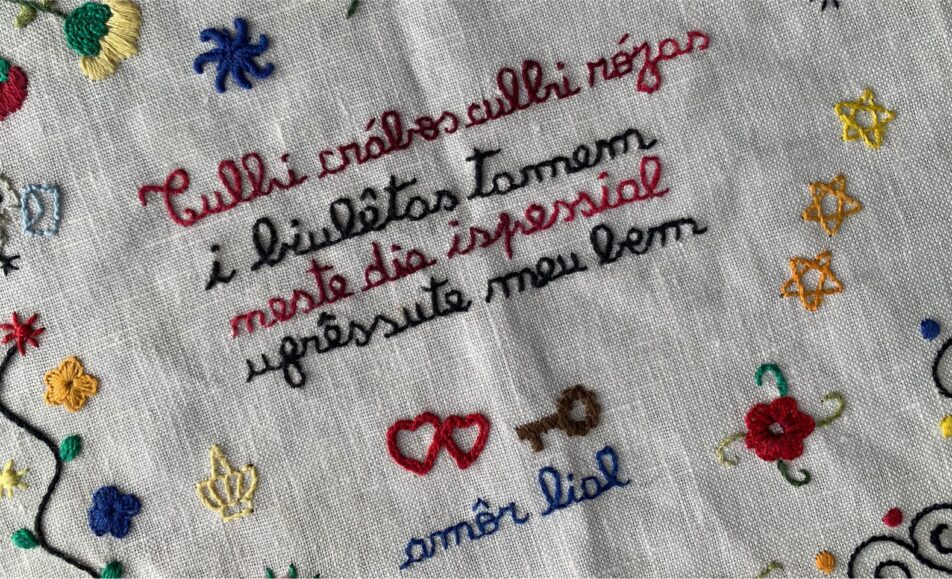 Culhi crábos culhi rózas
i biulêtas tamem
neste dia ispessial
ufrêssute meu bem
amôr lial